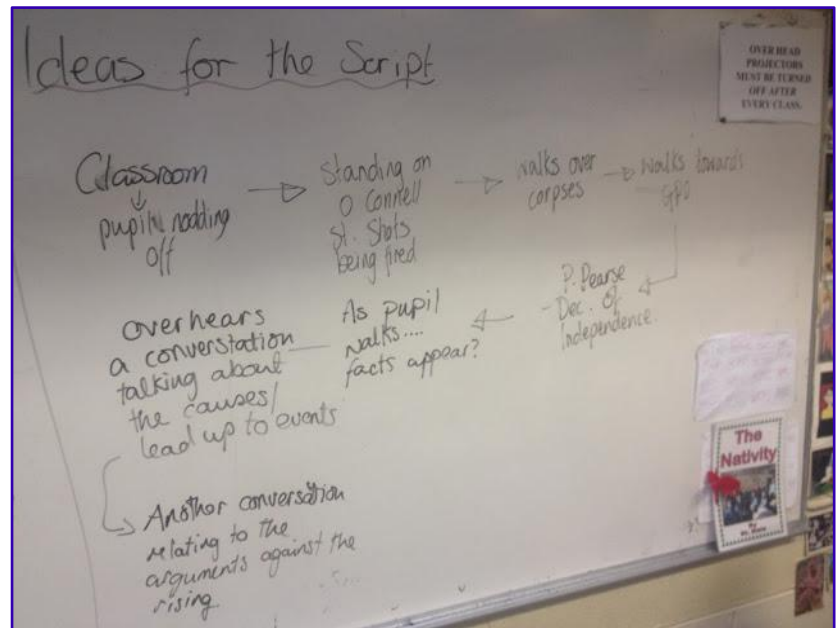 Ideas for the Script
OVER HEAD
PROJECTORS
MUST BE TURNED
OFF AFTER
EVERY CLASS.
Classroom
pupil nodding
off
Standing on
O Connell
St. Shots
being fired
walks over
corpses
Walks towards
GPO
P. Pearse
Dec. of
Independence.
As pupil
walks....
facts appear?
overhears
a converstation
talking about
the causes/
lead up to events
Another conversation
relating to the
arguments against the
rising.
The
Nativity
By